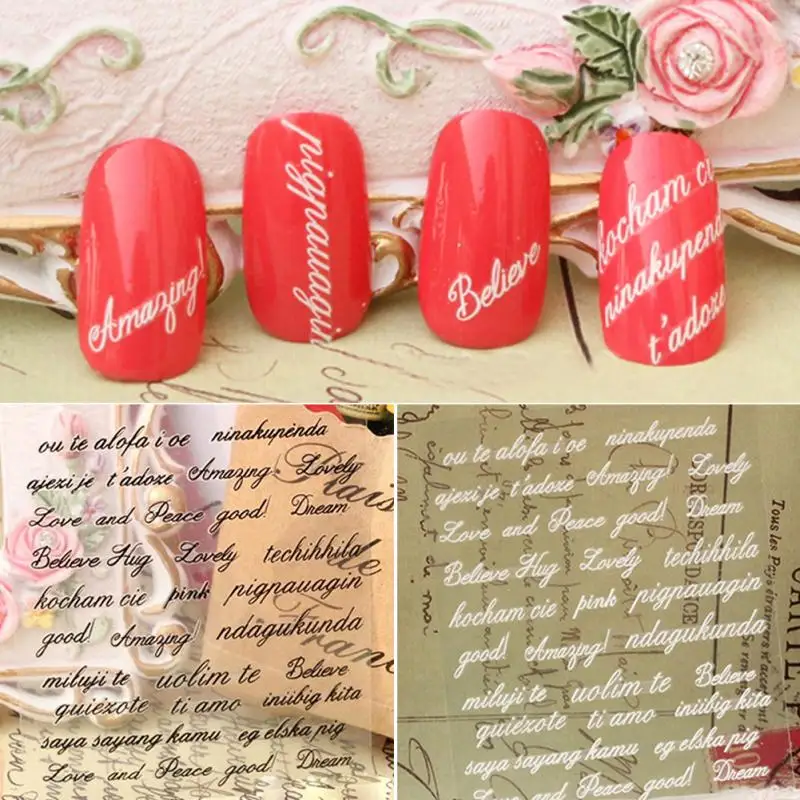 Amazing!
pigpauagin
Believe
kocham ci
ninakupenda
t'adoze
ou te alofa i oe ninakupenda
ajezi je t'adoze Amazing! Lovely
Love and Peace good! Dream
Believe Hug Lovely techihhila
kocham cie pink pigpauagin
good! Amazing! ndagukunda
miluji te uolim te Believe
quiezote ti amo iniibig kita
saya sayang kamu eg elska pig
Love and Peace good! Dream
ou te alofa i oe ninakupenda
ajezi je t'adoze Amazing! Lovely
Love and Peace good! Dream
Believe Hug Lovely techihhila
kocham cie pink pigpauagin
good! Amazing! ndagukunda
miluji te uolim te Believe
quiezote ti amo iniibig kita
saya sayang kamu eg elska pig
Love and Peace good! Dream